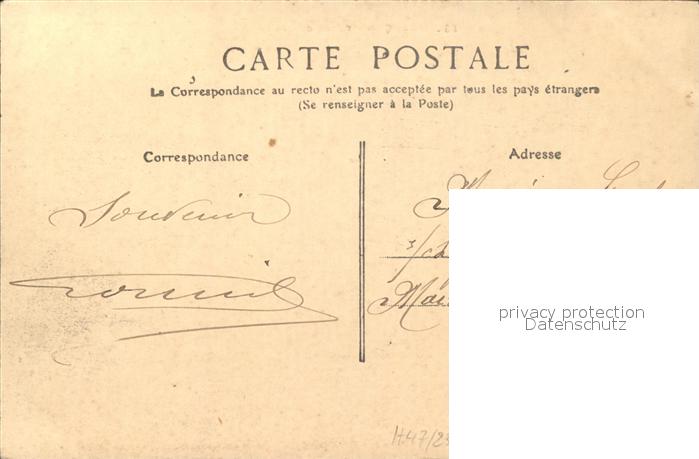 CARTE POSTALE
La Correspondance au recto n'est pas acceptée par tous les pays étrangers
(Se renseigner à la Poste)
Correspondance
Adresse
Souvenir
privacy protection
Datenschutz